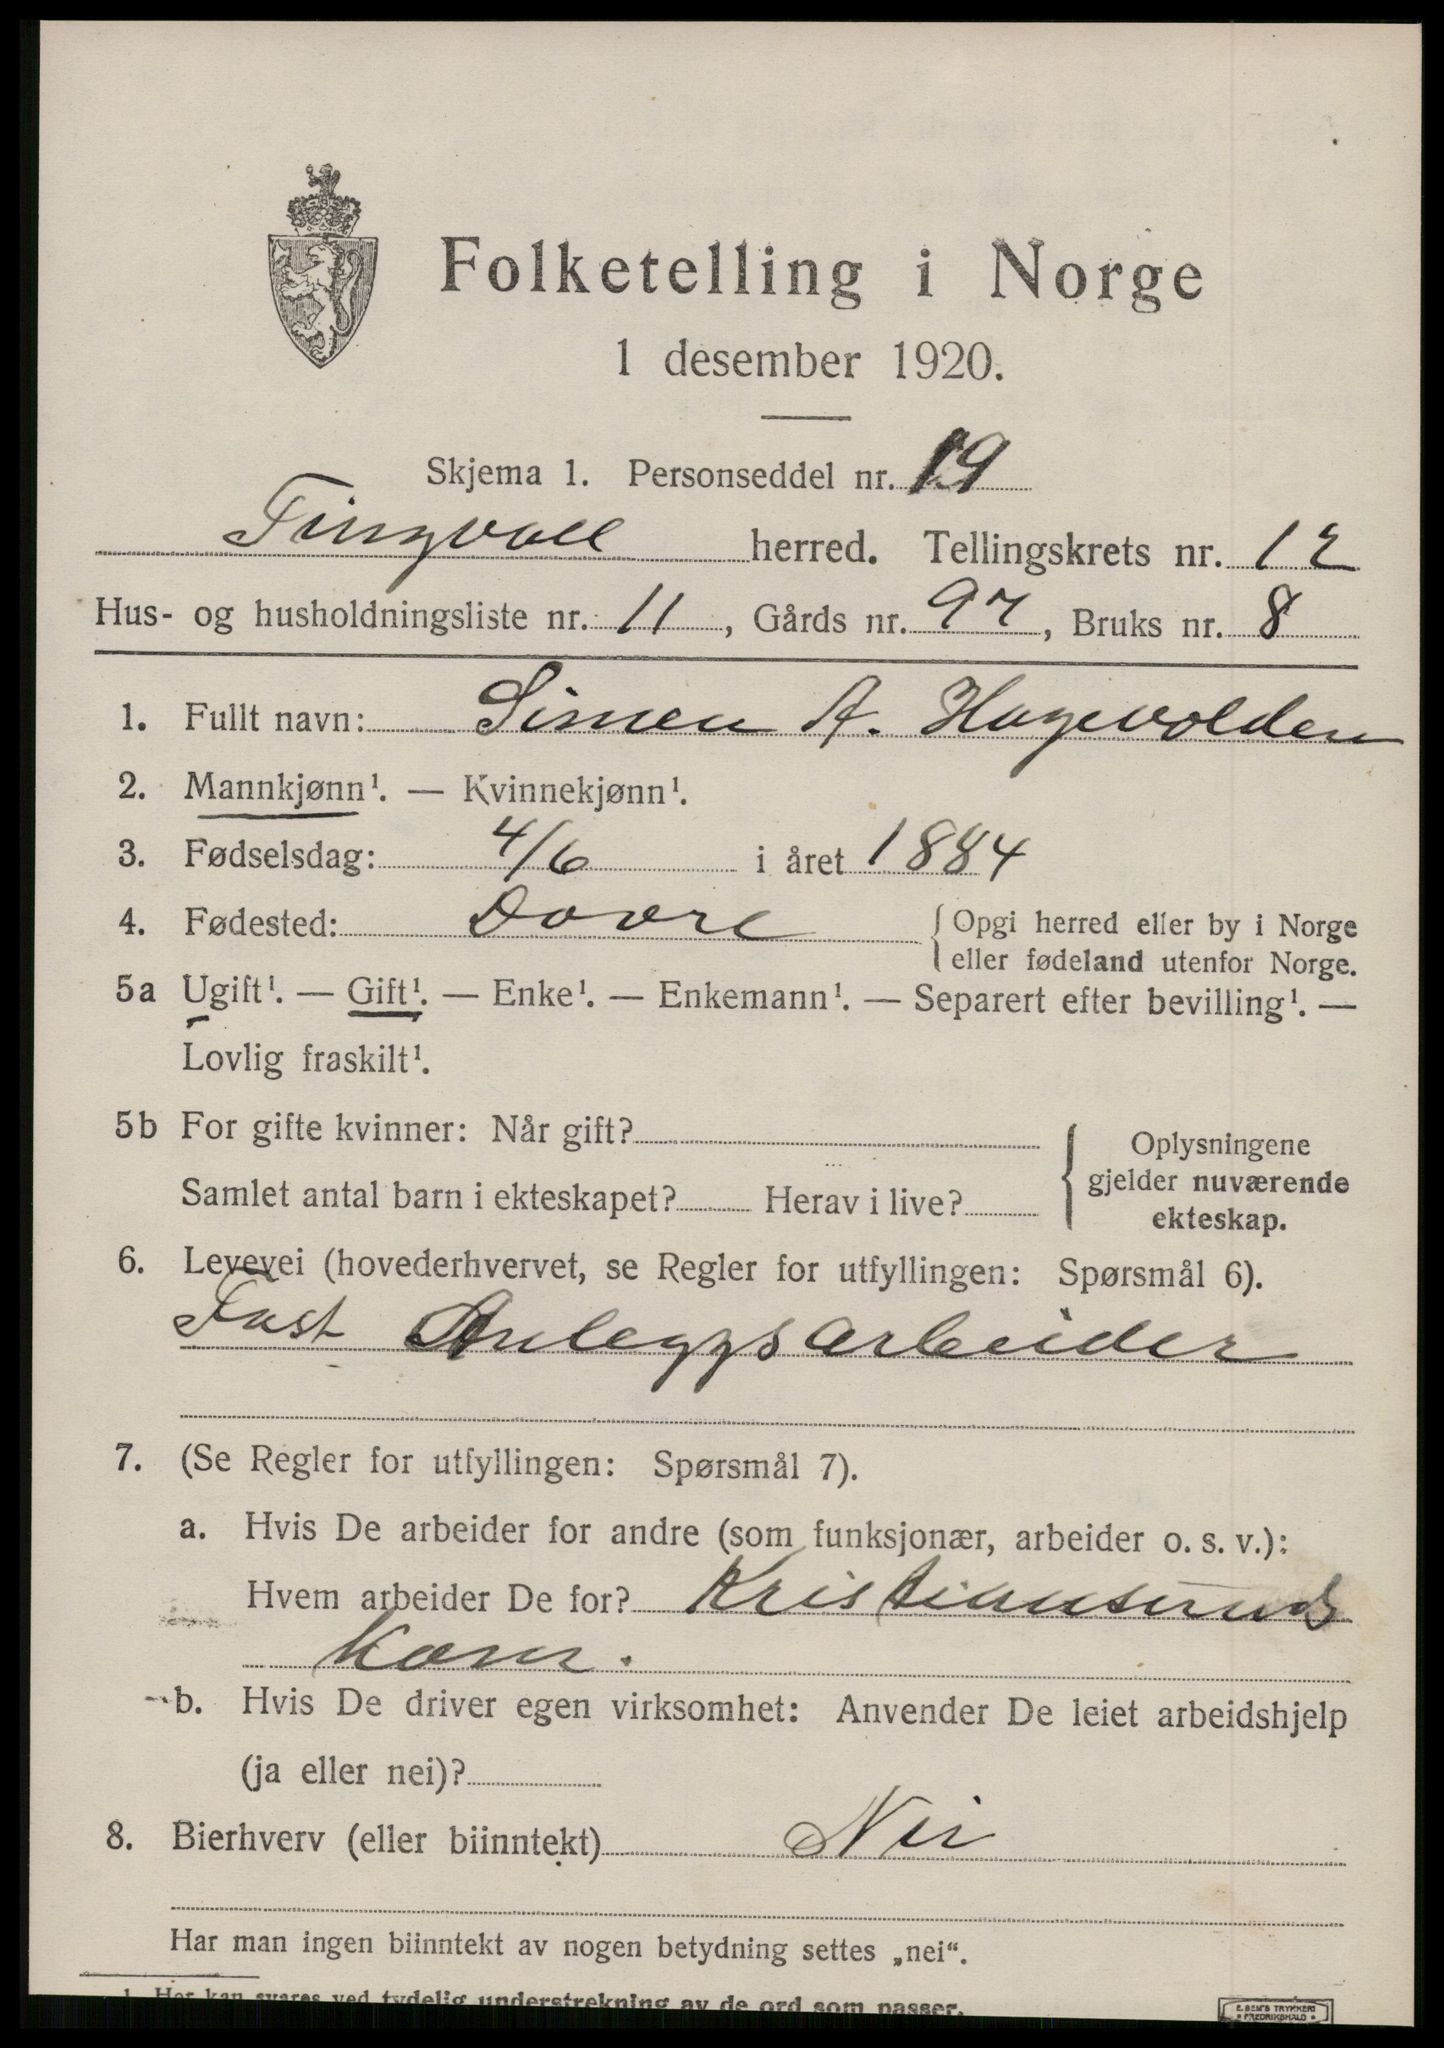 Folketelling i Norge
1 desember 1920.
Skjema 1. Personseddel nr. 19
Tingvoll herred. Tellingskrets nr. 12
Hus- og husholdningsliste nr. 11, Gårds nr. 97, Bruks nr. 8
1. Fullt navn: Simen A. Hagevolden
2. Mannkjønn¹. — Kvinnekjønn¹.
3. Fødselsdag: 4/6 i året 1884
4. Fødested: Dovre { Opgi herred eller by i Norge
eller fødeland utenfor Norge.
5a Ugift¹. — Gift¹. — Enke¹. — Enkemann¹. — Separert efter bevilling¹. —
Lovlig fraskilt¹.
5b For gifte kvinner: Når gift?
Samlet antal barn i ekteskapet? Herav i live?
{ Oplysningene
gjelder nuværende
ekteskap.
6. Levevei (hovederhvervet, se Regler for utfyllingen: Spørsmål 6).
Fast Anleggsarbeider
7. (Se Regler for utfyllingen: Spørsmål 7).
a. Hvis De arbeider for andre (som funksjonær, arbeider o. s. v.):
Hvem arbeider De for? Kristiansunds
Kom.
b. Hvis De driver egen virksomhet: Anvender De leiet arbeidshjelp
(ja eller nei)?
8. Bierhverv (eller biinntekt) Nei
Har man ingen biinntekt av nogen betydning settes „nei“.
1. Her kan svares ved tydelig understrekning av de ord som passer.
E. SEM'S TRYKKERI
FREDRIKSHALD